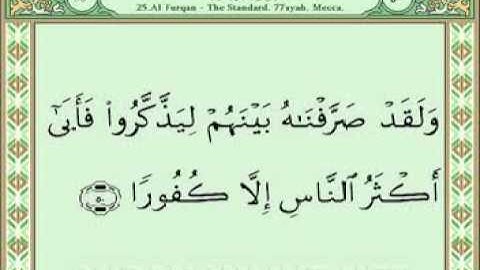 25.Al Furqan - The Standard. 77ayah. Mecca.
وَلَقَدْ صَرَّفْنَٰهُ بَيْنَهُمْ لِيَذَّكَّرُوا۟ فَأَبَىٰٓ
أَكْثَرُ ٱلنَّاسِ إِلَّا كُفُورًا ٥٠